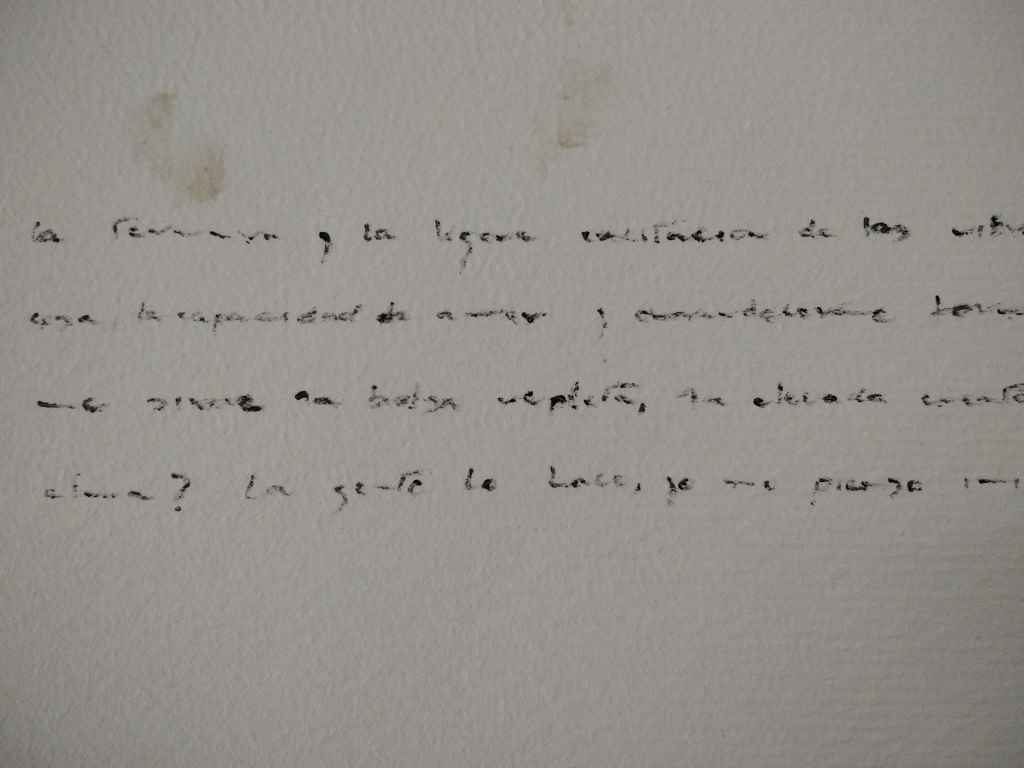 la ternura y la ligera excitación de los
una la capacidad de amar y
me sirve la bolsa repleta, la elevada
alma? La gente lo hace, yo me pienso